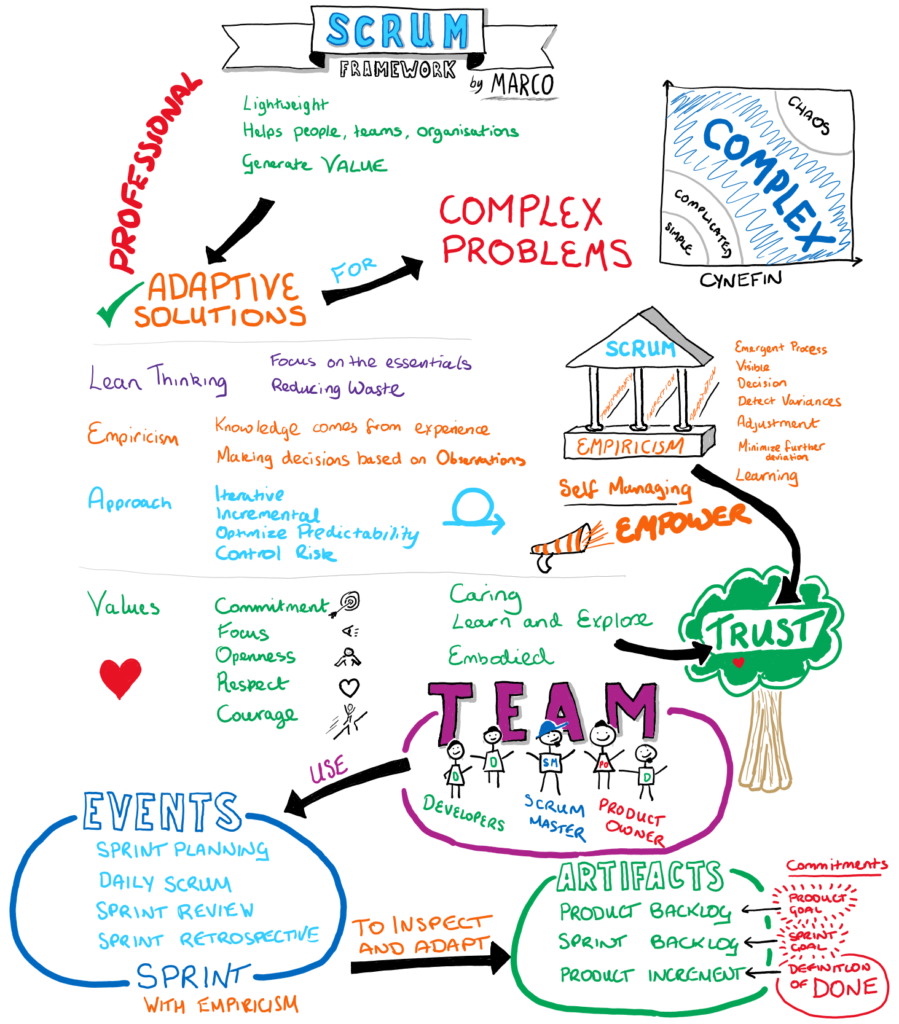 SCRUM
FRAMEWORK
by MARCO
PROFESSIONAL
Lightweight
Helps people, teams, organisations
Generate VALUE
ADAPTIVE
SOLUTIONS
FOR
COMPLEX
PROBLEMS
CHAOS
COMPLEX
COMPLICATED
SIMPLE
CYNEFIN
Lean Thinking
Focus on the essentials
Reducing Waste
Empiricism
Knowledge comes from experience
Making decisions based on Observations
Approach
Iterative
Incremental
Optimize Predictability
Control Risk
SCRUM
TRANSPARENCY
INSPECTION
ADAPTATION
EMPIRICISM
Emergent Process
Visible
Decision
Detect Variances
Adjustment
Minimize further
deviation
Learning
Self Managing
EMPOWER
Values
Commitment
Focus
Openness
Respect
Courage
Caring
Learn and Explore
Embodied
TRUST
TEAM
D
D
SM
PO
D
DEVELOPERS
SCRUM
MASTER
PRODUCT
OWNER
USE
EVENTS
SPRINT PLANNING
DAILY SCRUM
SPRINT REVIEW
SPRINT RETROSPECTIVE
SPRINT
WITH EMPIRICISM
TO INSPECT
AND ADAPT
ARTIFACTS
PRODUCT BACKLOG
SPRINT BACKLOG
PRODUCT INCREMENT
Commitments
PRODUCT
GOAL
SPRINT
GOAL
DEFINITION
OF DONE